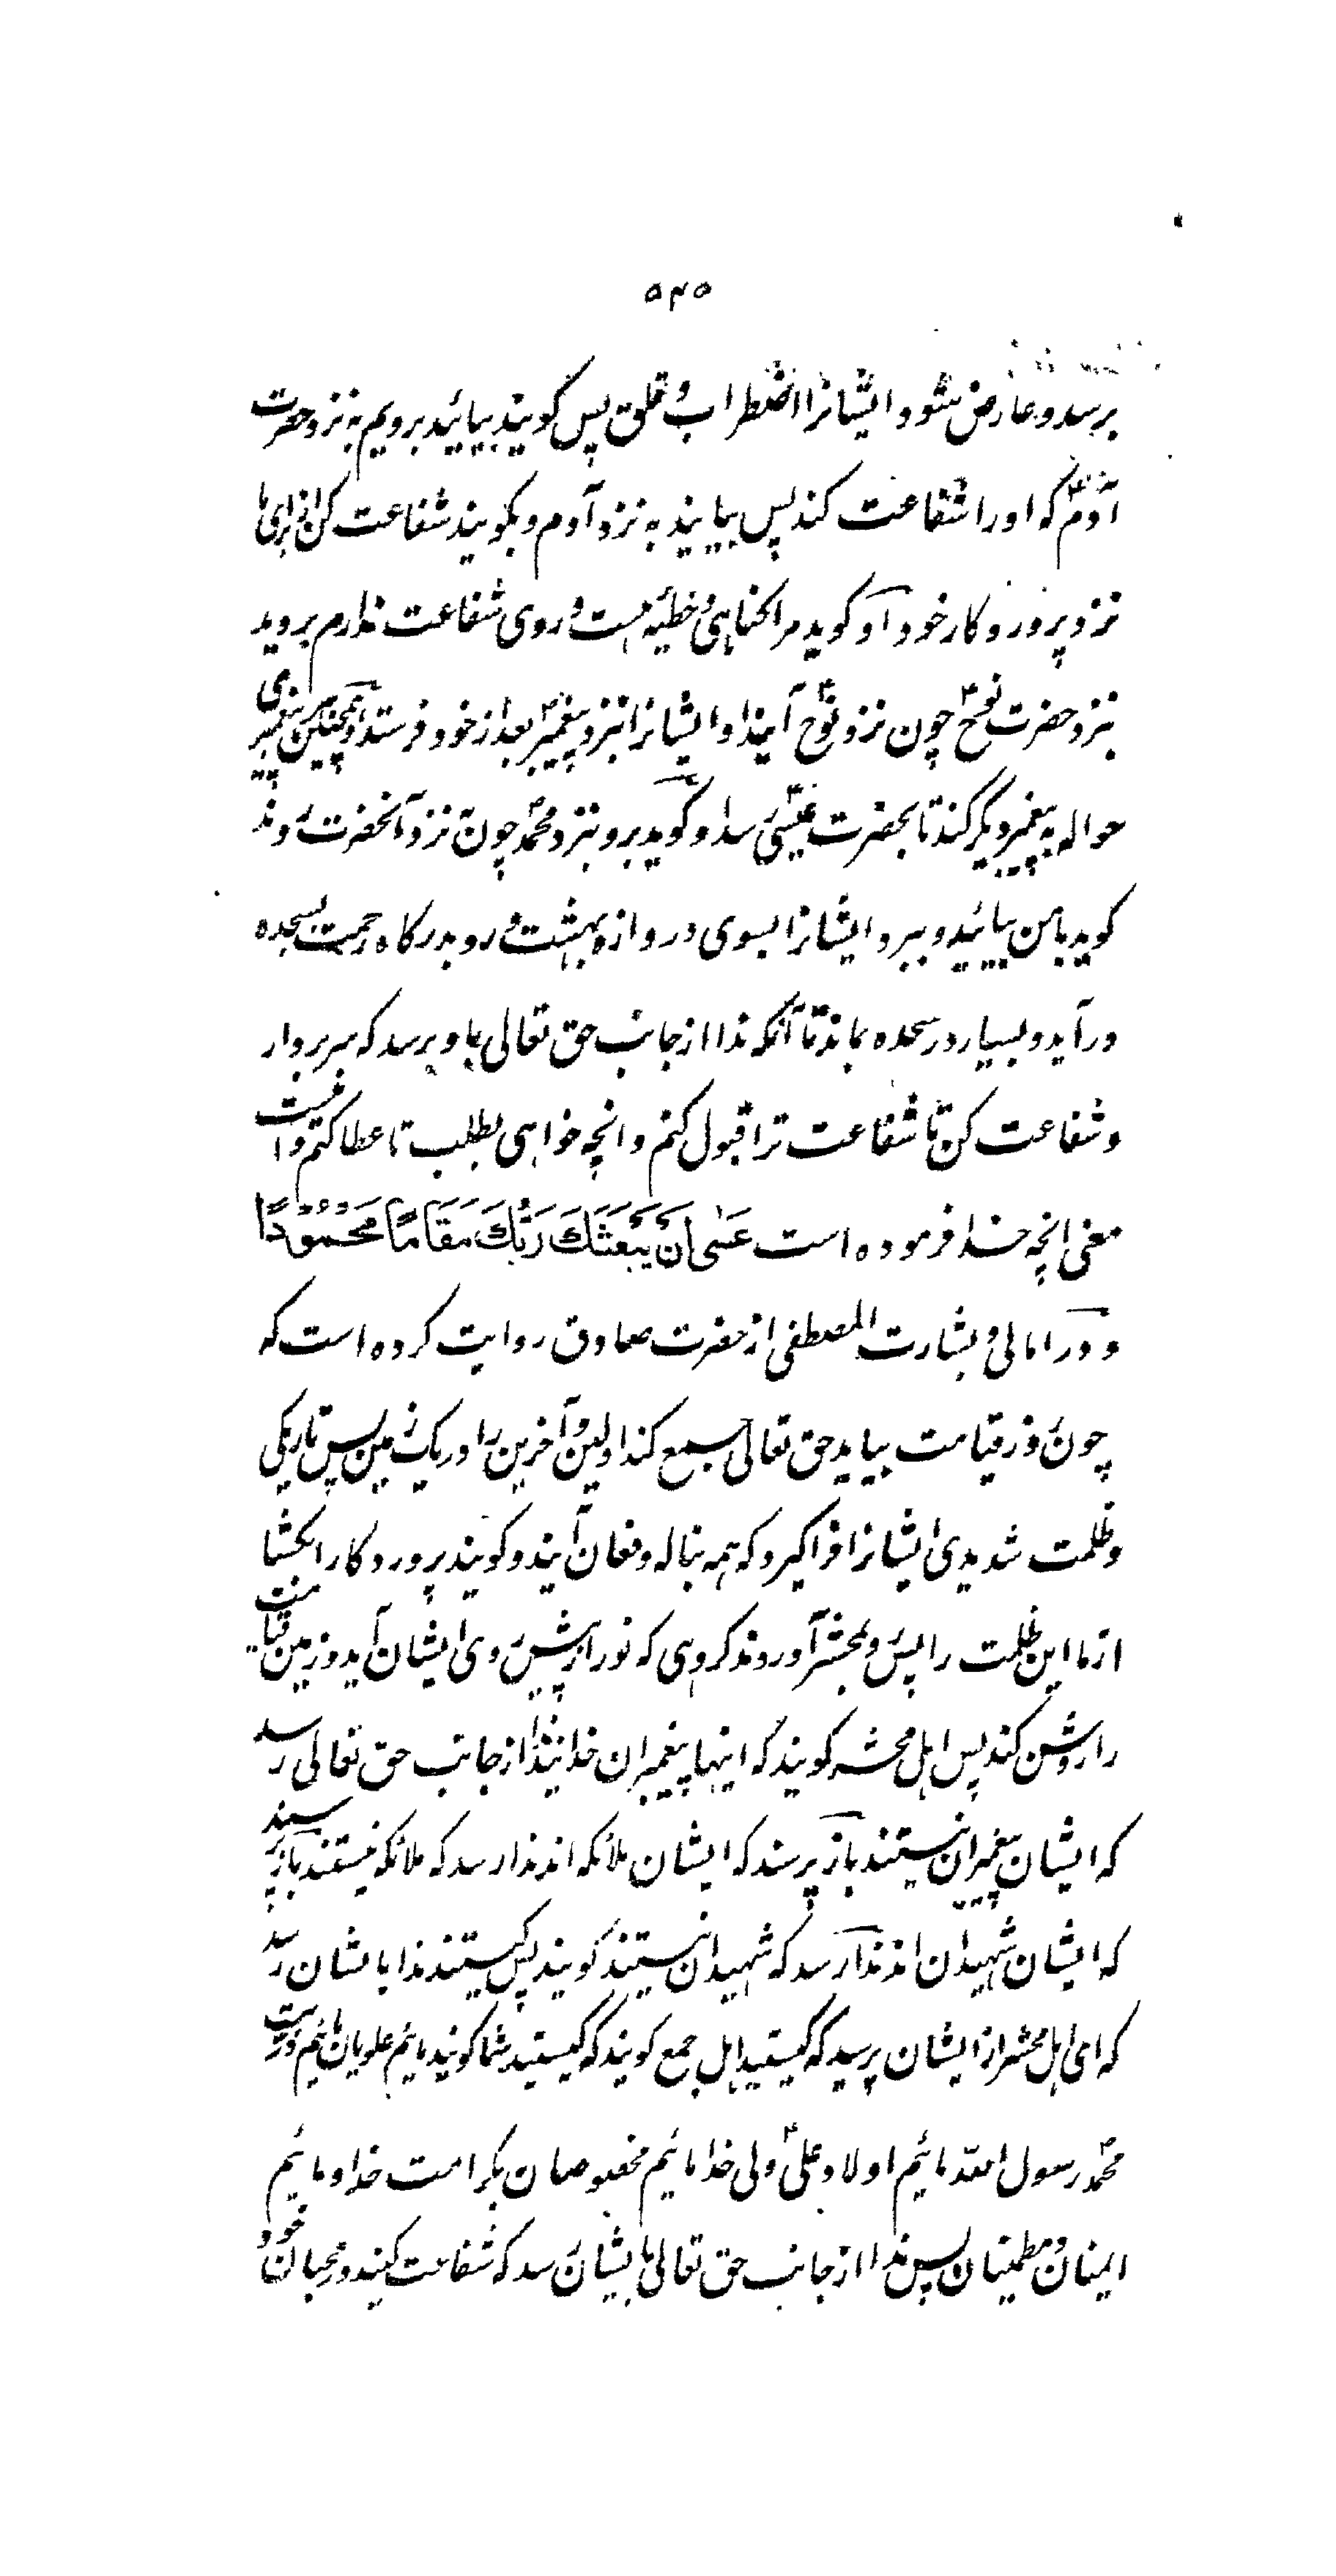 ۵۴۵
برسد و عارض شود ایشانرا اضطراب و قلق پس کویند بیائید برویم به نزد حضرت
آدمؑ که او را شفاعت کند پس بیایند به نزد آدم و بکویند شفاعت کن از برای ما
نزد پروردکار خود او کوید مرا کناهی و خطیه هست و روی شفاعت ندارم بروید
بنزد حضرت نوحؑ چون نزد نوحؑ آیند او ایشانرا بنزد پیغمبر بعد از خود فرستد و همچنین هر پیغمبری
حواله به پیغمبر دیکر کند تا بحضرت عیسیؑ رسد او کوید بروید بنزد محمدؐ چون نزد آنحضرت روند
کوید با من بیائید و ببرد ایشانرا بسوی دروازه بهشت و رو بدرکاه رحمت بسجده
درآید و بسیار در سجده بماند تا آنکه ندا از جانب حق تعالی باو برسد که سر بردار
و شفاعت کن تا شفاعت ترا قبول کنم و انچه خواهی بطلب تا عطا کنم و اینست
معنی انچه خدا فرموده است عَسٰی اَنْ یَبْعَثَكَ رَبُّكَ مَقَامًا مَحْمُوْدًا
و در امالی و بشارت المصطفی از حضرت صادق روایت کرده است که
چون روز قیامت بیاید حق تعالی جمع کند اولین و آخرین را در یک زمین پس تاریکی
و ظلمت شدیدی ایشانرا فراکیرد که همه بناله و فغان آیند و کویند پروردکارا بکشا
از ما این ظلمت را پس رو بمحشر آورند کروهی که نور از پیش روی ایشان آید و زمین قیامت
را روشن کند پس اهل محشر کویند که اینها پیغمبران خدایند ندا از جانب حق تعالی رسد
که ایشان پیغمبران نیستند باز پرسند که ایشان ملائکه اند ندا رسد که ملائکه نیستند باز پرسند
که ایشان شهیدان اند ندا رسد که شهیدان نیستند کویند پس کیستند ندا بایشان رسد
که ای اهل محشر از ایشان پرسید که کیستید اهل جمع کویند که کیستید شما کویند مائیم علویان مائیم ذریت
محمدؐ رسول الله مائیم اولاد علیؑ ولی خدا مائیم مخصوصان بکرامت خدا و مائیم
ایمنان و مطمئنان پس ندا از جانب حق تعالی بایشان رسد که شفاعت کنید در محبان خود